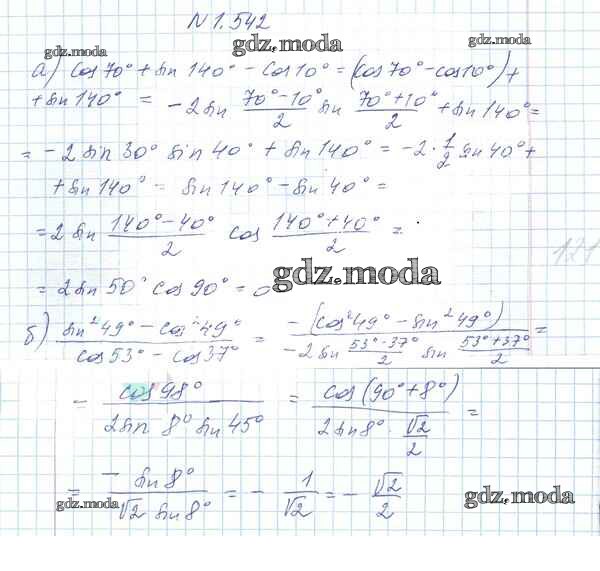 N 1.542
gdz.moda
gdz.moda
gdz.moda
а) cos 70° + sin 140° - cos 10° = (cos 70° - cos 10°) +
+ sin 140° = -2 sin (70° - 10°)/2 sin (70° + 10°)/2 + sin 140° =
= -2 sin 30° sin 40° + sin 140° = -2 · 1/2 sin 40° +
+ sin 140° = sin 140° - sin 40° =
= 2 sin (140° - 40°)/2 cos (140° + 40°)/2 =
= 2 sin 50° cos 90° = 0
gdz.moda
б) (sin² 49° - cos² 49°)/(cos 53° - cos 37°) = (-(cos² 49° - sin² 49°))/(-2 sin (53° - 37°)/2 sin (53° + 37°)/2) =
= cos 98°/(2 sin 8° sin 45°) = cos (90° + 8°)/(2 sin 8° · √2/2) =
= (- sin 8°)/(√2 sin 8°) = - 1/√2 = - √2/2
gdz.moda
gdz.moda